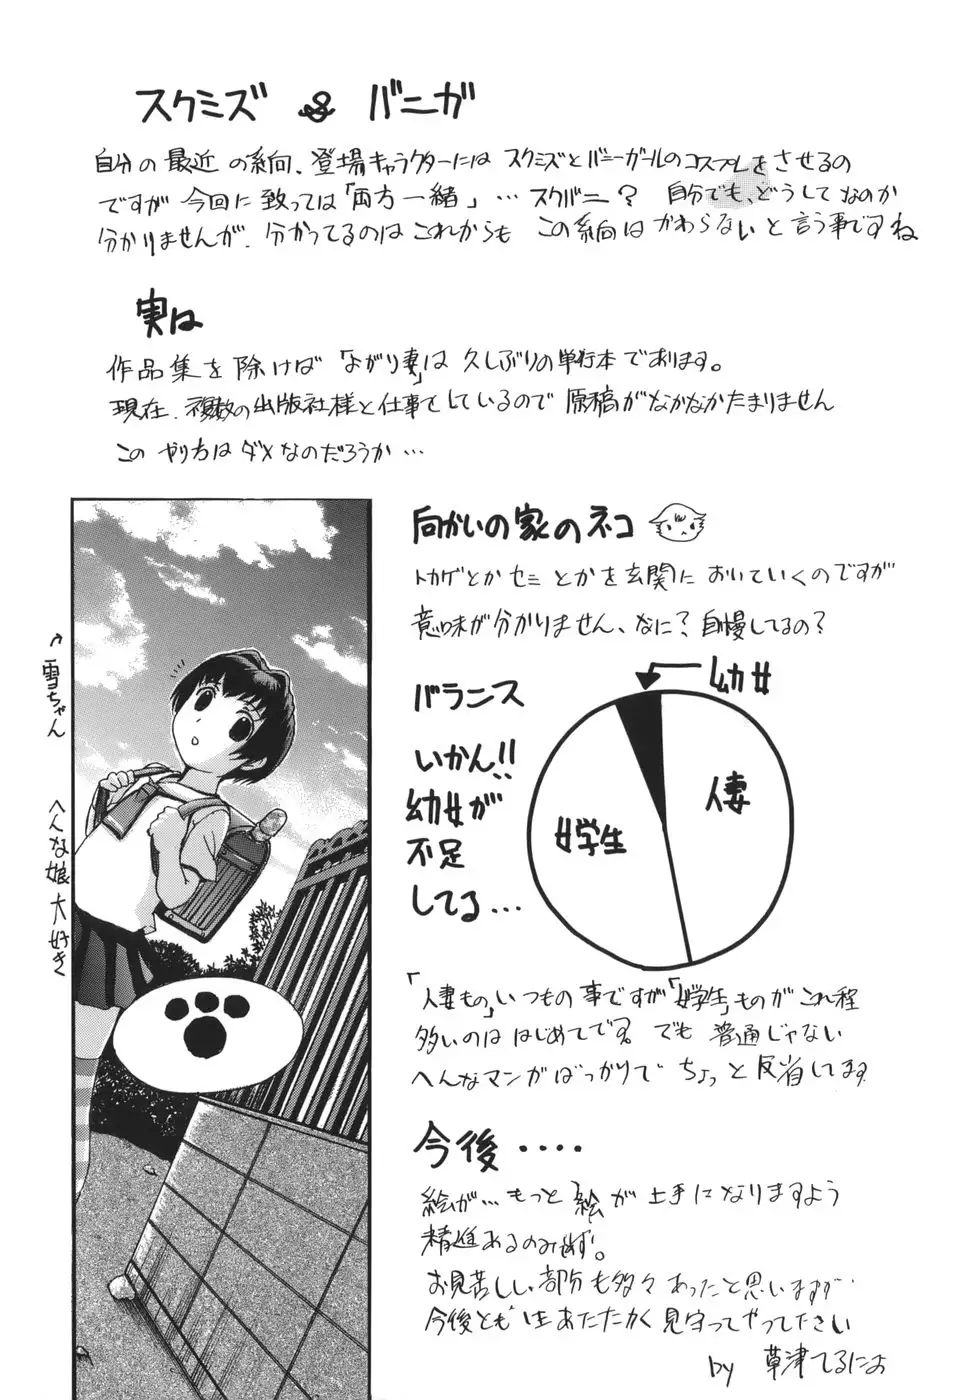 スクミズ & バニガ
自分の最近の系向、登場キャラクターにはスクミズとバニーガールのコスプレをさせるの
ですが今回に致っては「両方一緒」…スクバニ？ 自分でも、どうしてなのか
分かりませんが、分かってるのはこれからもこの系向はかわらないと言う事ですね
実は
作品集を除けば「ながり妻」は久しぶりの単行本であります。
現在、複数の出版社様と仕事をしているので原稿がなかなかたまりません
このやり方はダメなのだろうか…
向かいの家のネコ
トカゲとかセミとかを玄関においていくのですが
意味が分かりません、なに？自慢してるの？
バランス
いかん!!
幼女が
不足
してる…
幼女
人妻
女学生
「人妻もの」いつもの事ですが「女学生」ものがこれ程
多いのははじめてです。でも普通じゃない
へんなマンガばっかりでちょっと反省してます
今後‥‥
絵が…もっと絵が上手になりますよう
精進あるのみ。
お見苦しい部分も多々あったと思いますが
今後ともあたたかく見守ってやって下さい
by 草津てるにょ
雪ちゃん
へんな娘大好き